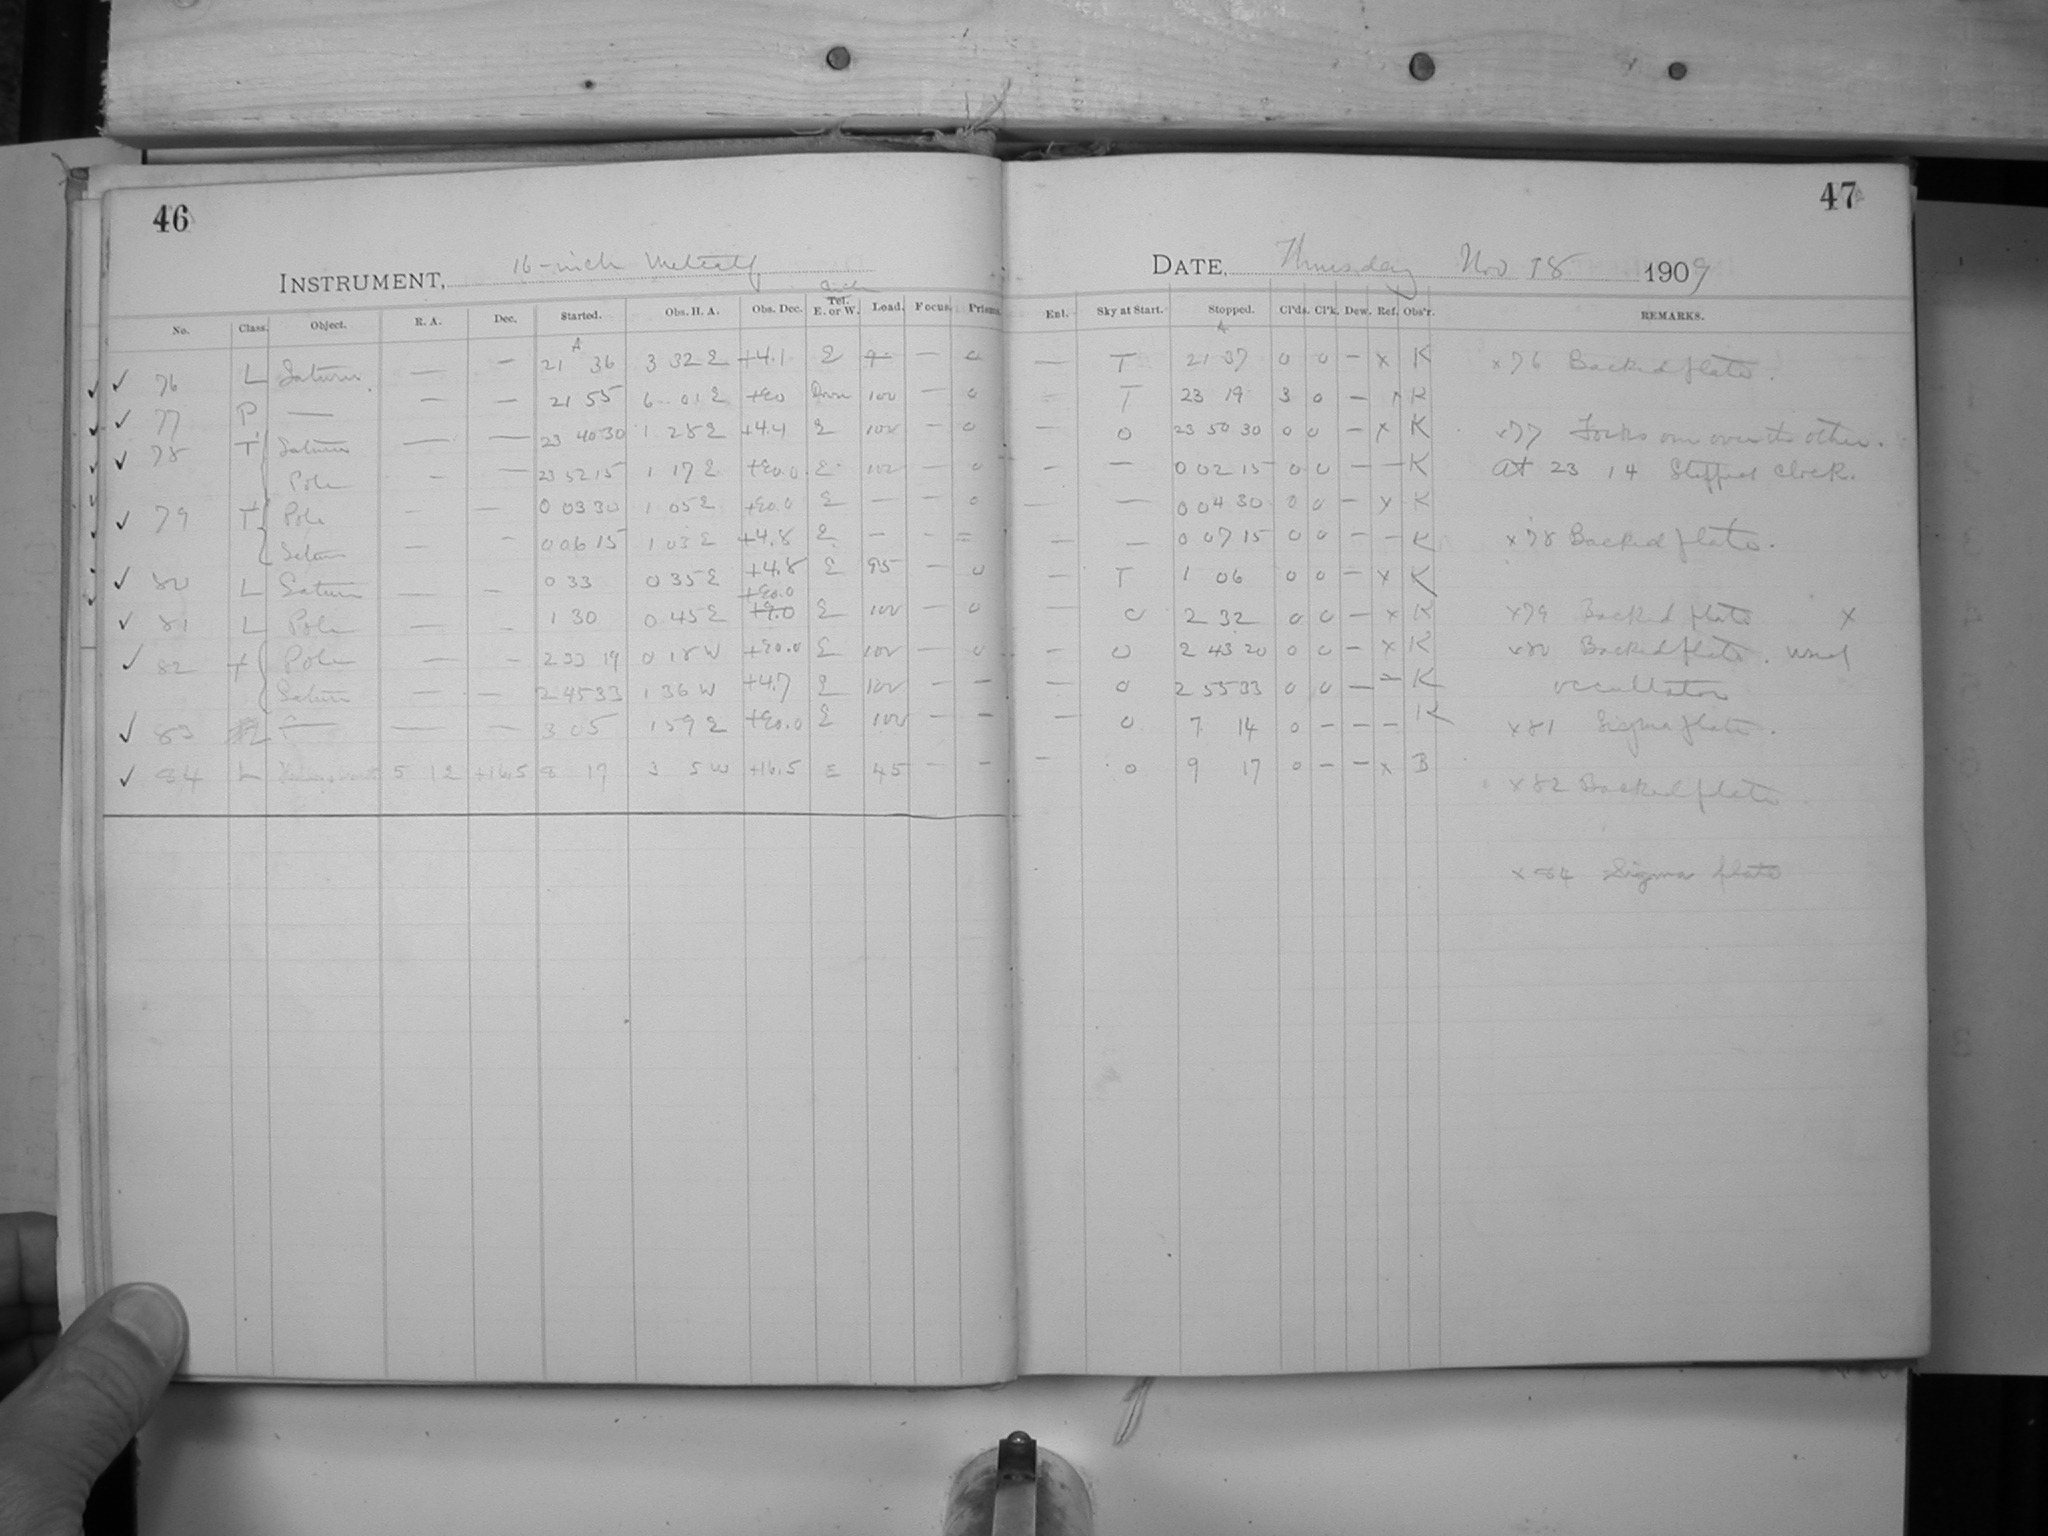 46
47
INSTRUMENT, 16-inch Metcalf
DATE, Thursday Nov 18 1909
No. Class. Object. R. A. Dec. Started. Obs. H. A. Obs. Dec. Tel. E. or W. Load. Focus. Prisms. Enl. Sky at Start. Stopped. Cl'ds. Cl'k. Dew. Ref. Obs'r. REMARKS.
✓ 76 L Saturn — — 21 36 3 32 E +4.1 E — o — T 21 37 0 0 — x K x76 Backed plate.
✓ 77 P — — — 21 55 6 01 E +90 100 — o T 23 19 3 0 — K
✓ 78 T Saturn — — 23 40 30 1 28 E +4.4 E 100 — o O 23 50 30 0 0 — x K x77 Forks one over the other.
Pole — — 23 52 15 1 17 E +90.0 E 100 — o — — 0 02 15 0 0 — — K At 23 14 Stopped clock.
✓ 79 T Pole — — 0 03 30 1 05 E +90.0 E — — o — — 0 04 30 0 0 — x K
Saturn — — 0 06 15 1 03 E +4.8 E — — — — 0 07 15 0 0 — — K x78 Backed plate.
✓ 80 L Saturn — — 0 33 0 35 E +4.8 E 95 — o — T 1 06 0 0 — x K
✓ 81 L Pole — — 1 30 0 45 E +90.0 E 100 — o O 2 32 0 0 — x K x79 Backed plate x
✓ 82 T Pole — — 2 33 19 0 18 W +90.0 E 100 — o — O 2 43 20 0 0 — x K x80 Backed plate. Used
Saturn — — 2 45 33 1 36 W +4.7 E 100 — — — O 2 55 33 0 0 — — K occultator
✓ 83 — — — 3 05 1 59 E +90.0 E 100 — — — O 7 14 0 — — — K x81 Sigma plate.
✓ 84 L 5 12 +16.5 8 17 3 5 W +16.5 E 45 — — — O 9 17 0 — — x B
x82 Backed plate.
x84 Sigma plate